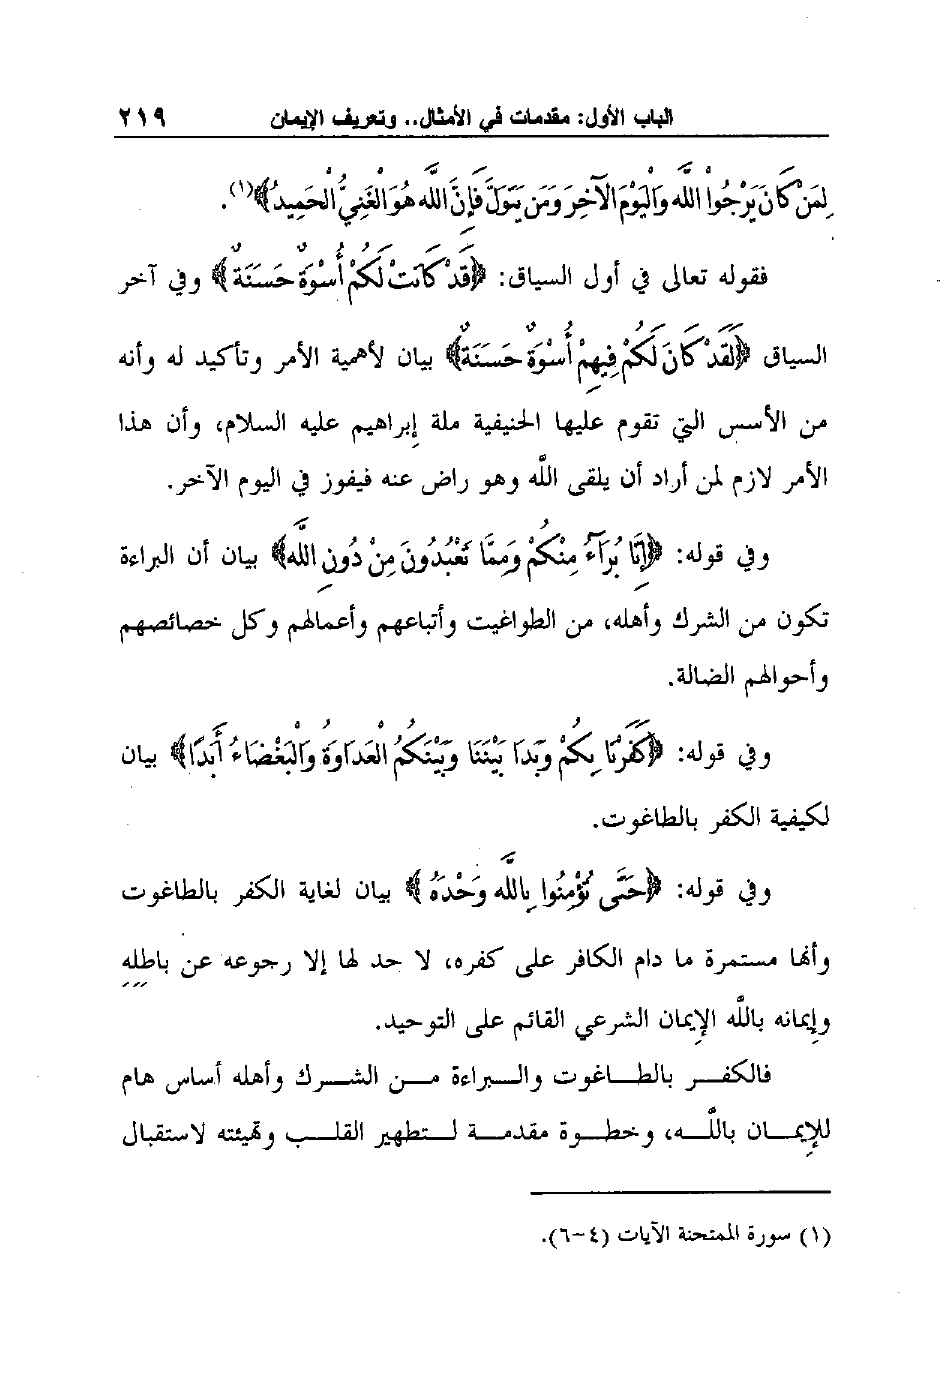 الباب الأول: مقدمات في الأمثال.. وتعريف الإيمان ٢١٩
لِمَن كَانَ يَرْجُواْ اللَّهَ وَالْيَوْمَ الْآخِرَ وَمَن يَتَوَلَّ فَإِنَّ اللَّهَ هُوَ الْغَنِيُّ الْحَمِيدُ﴾(١).
فقوله تعالى في أول السياق: ﴿قَدْ كَانَتْ لَكُمْ أُسْوَةٌ حَسَنَةٌ﴾ وفي آخر
السياق ﴿لَقَدْ كَانَ لَكُمْ فِيهِمْ أُسْوَةٌ حَسَنَةٌ﴾ بيان لأهمية الأمر وتأكيد له وأنه
من الأسس التي تقوم عليها الحنيفية ملة إبراهيم عليه السلام، وأن هذا
الأمر لازم لمن أراد أن يلقى اللَّه وهو راض عنه فيفوز في اليوم الآخر.
وفي قوله: ﴿إِنَّا بُرَآءُ مِنْكُمْ وَمِمَّا تَعْبُدُونَ مِنْ دُونِ اللَّهِ﴾ بيان أن البراءة
تكون من الشرك وأهله، من الطواغيت وأتباعهم وأعمالهم وكل خصائصهم
وأحوالهم الضالة.
وفي قوله: ﴿كَفَرْنَا بِكُمْ وَبَدَا بَيْنَنَا وَبَيْنَكُمُ الْعَدَاوَةُ وَالْبَغْضَاءُ أَبَدًا﴾ بيان
لكيفية الكفر بالطاغوت.
وفي قوله: ﴿حَتَّى تُؤْمِنُوا بِاللَّهِ وَحْدَهُ﴾ بيان لغاية الكفر بالطاغوت
وأنها مستمرة ما دام الكافر على كفره، لا حد لها إلا رجوعه عن باطله
وإيمانه باللَّه الإيمان الشرعي القائم على التوحيد.
فالكفـــر بالطـــاغوت والـــبراءة مـــن الشـــرك وأهله أساس هام
للإيمـــان باللَّـــه، وخطـــوة مقدمـــة لـــتطهير القلـــب وتهيئته لاستقبال
(١) سورة الممتحنة الآيات (٤-٦).